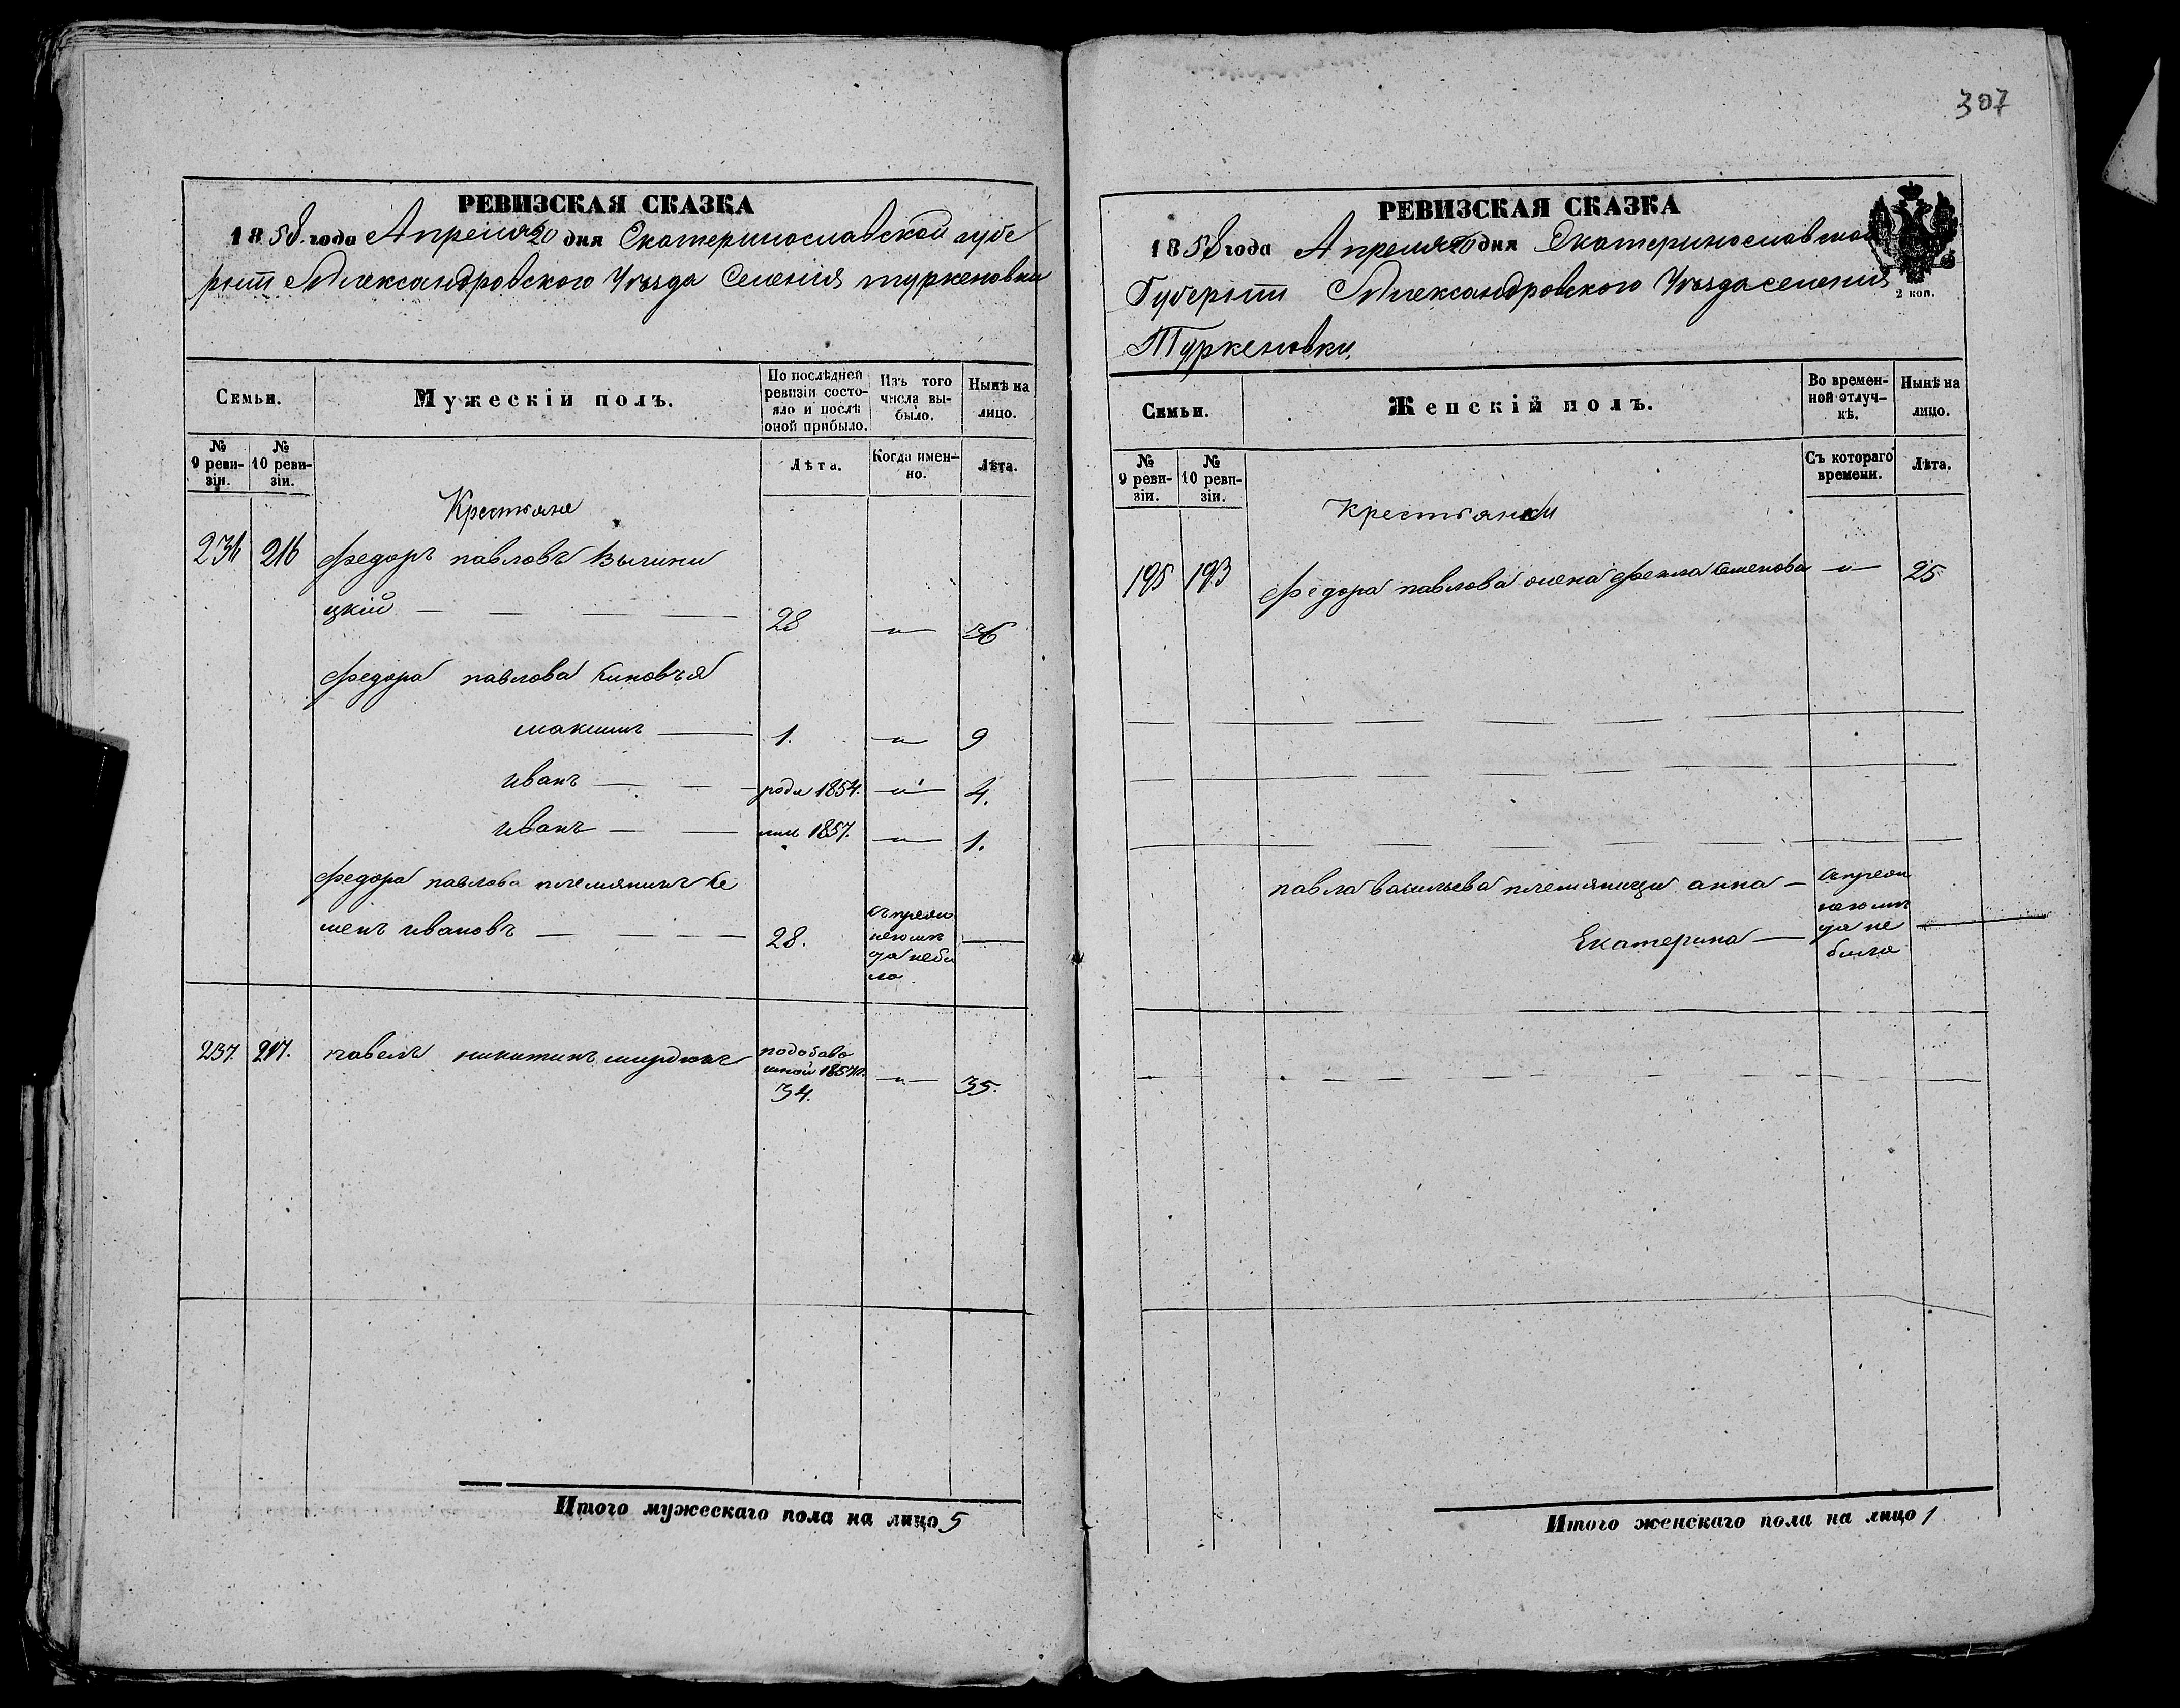 307
РЕВИЗСКАЯ СКАЗКА
1858 года Апреля 20 дня Екатеринославской губе
рнiи Александровского Уѣзда Селенiя туркеновки
Семьи.
Мужескiй полъ.
По послѣдней ревизiи состояло и послѣ оной прибыло.
Изъ того числа выбыло.
Нынѣ на лицо.
№ 9 ревизiи.
№ 10 ревизiи.
Лѣта.
Когда именно.
Лѣта.
Крестьяне
236 216 федоръ павловъ
цкiй — 28 — 36
федора павлова синовья
максимъ — 1. — 9
иванъ — роди 1854. — 4.
иванъ — 1857. — 1.
федора павлова племяникъ се
менъ ивановъ — 28.
237. 217. павелъ никитинъ
1857
34. — 35.
Итого мужескаго пола на лицо 5
РЕВИЗСКАЯ СКАЗКА
1858 года Апреля 20 дня Екатеринославской
Губернiи Александровского Уѣзда селенiя
Туркеновки.
2 коп.
Семьи.
Женскiй полъ.
Во временной отлучкѣ.
Нынѣ на лицо.
№ 9 ревизiи.
№ 10 ревизiи.
Съ котораго времени.
Лѣта.
Крестьянки
195 193 федора павлова жена фекла Семенова — 25
павла васильева племяницы анна —
Екатерина —
Итого женскаго пола на лицо 1